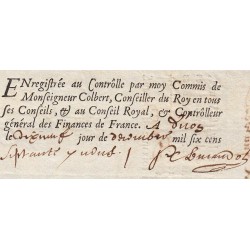 ENregistrée au Contrôlle par moy Commis de
Monseigneur Colbert, Conseiller du Roy en tous
ses Conseils, & au Conseil Royal, & Contrôlleur
général des Finances de France. A
le dixneuf jour de decembre mil six cens
soixante